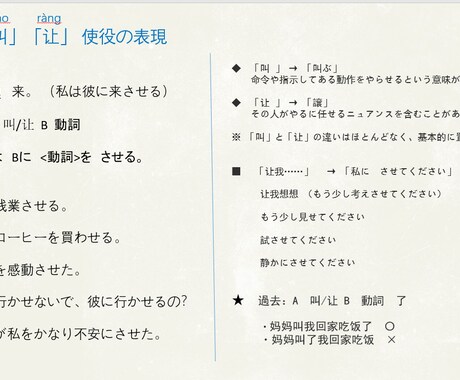 ràng
叫」「让」 使役の表現
来。 (私は彼に来させる)
叫/让 B 動詞
Bに <動詞>を させる。
残業させる。
コーヒーを買わせる。
を感動させた。
行かせないで、彼に行かせるの?
が私をかなり不安にさせた。
◆ 「叫 」 → 「叫ぶ」
命令や指示してある動作をやらせるという意味が
◆ 「让 」 → 「譲」
その人がやるに任せるニュアンスを含むことがあ
※ 「叫」と「让」の違いはほとんどなく、基本的に
■ 「让我……」 → 「私に させてください」
让我想想 (もう少し考えさせてください)
もう少し見せてください
試させてください
静かにさせてください
★ 過去: A 叫/让 B 動詞 了
・妈妈叫我回家吃饭了 〇
・妈妈叫了我回家吃饭 ×